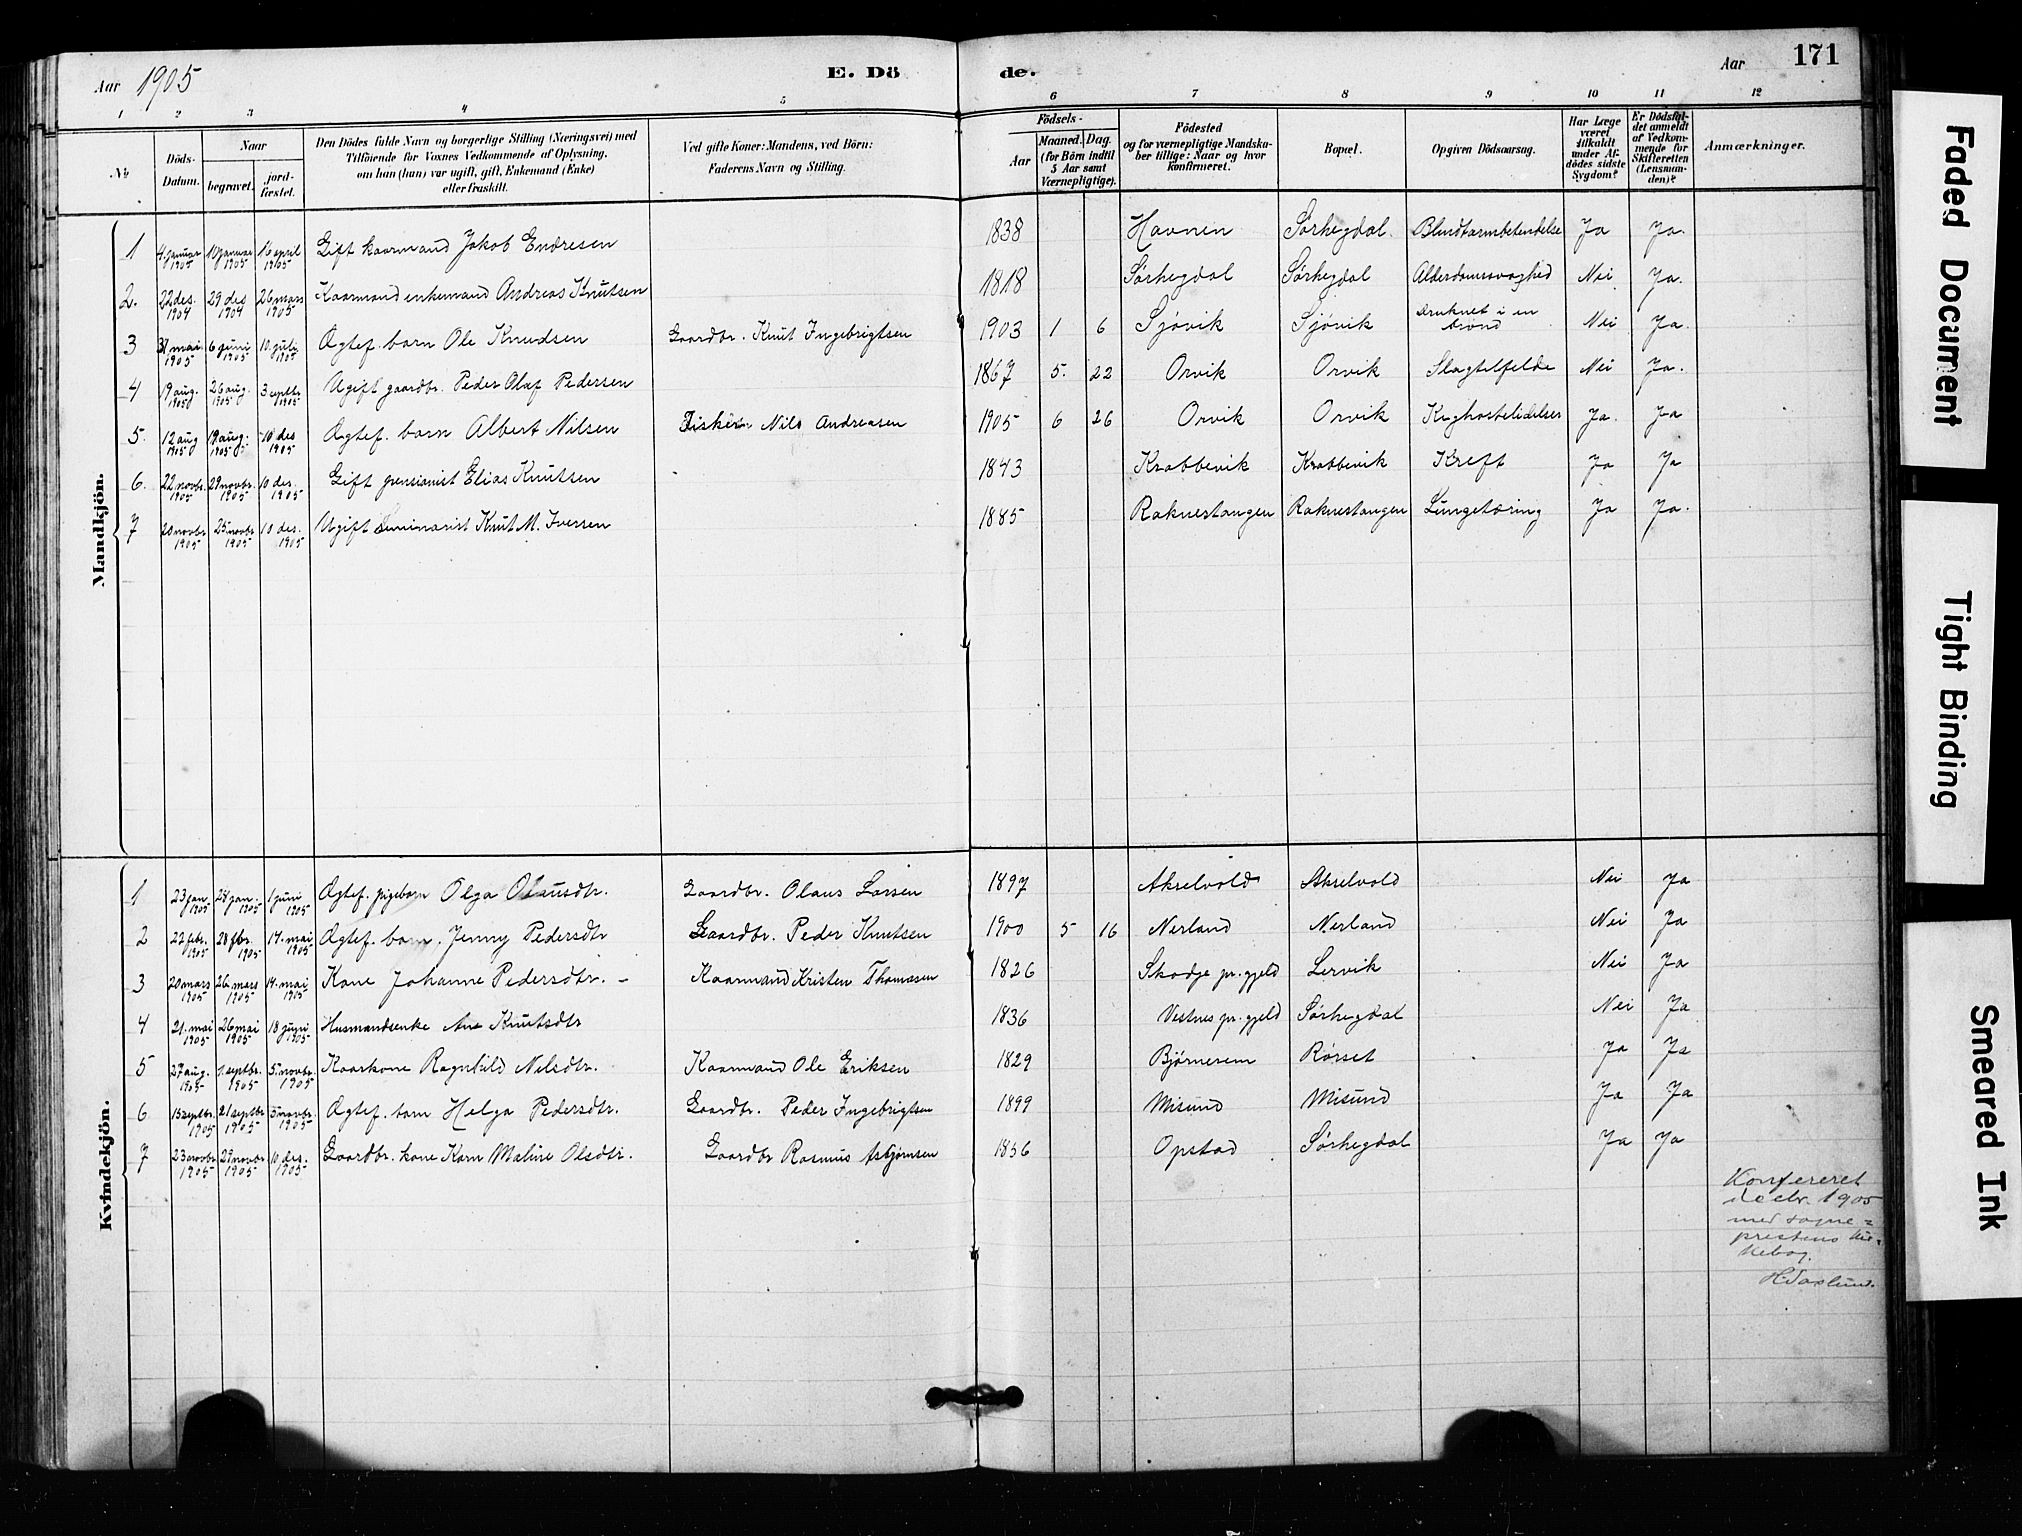 Aar 1905 E. Dö de. Aar 171
1 2 3 4 5 6 7 8 9 10 11 12
№ Döds-Datum. Naar begravet. jord-fæstet. Den Dödes fulde Navn og borgerlige Stilling (Næringsvei) med Tilföiende for Voxnes Vedkommende af Oplysning, om hun (han) var ugift, gift, Enkemand (Enke) eller fraskilt. Ved gifte Koner: Mandens, ved Börn: Faderens Navn og Stilling. Födsels- Aar Maaned. Dag. (for Börn indtil 5 Aar samt Værnepligtige). Födested og for værnepligtige Mandskaber tillige: Naar og hvor konfirmeret. Bopæl. Opgiven Dödsaarsag. Har Læge været tilkaldt under Afdödes sidste Sygdom? Er Dödsfaldet anmeldt af Vedkommende for Skifteretten (Lensmanden)? Anmærkninger.
Mandkjön.
1 4 januar 1905 10 januar 1905 16 april 1905 Gift kaarmand Jakob Endresen 1838 Havnen Sørhegdal. Blindtarmbetendelse Ja Ja.
2. 22 des. 1904 29 des 1904 26 mars 1905 Kaarmand enkemand Andreas Knutsen 1818 Sørhegdal Sørhegdal Alderdomssvaghed Nei Ja.
3 31 mai 1905 6 juni 1905 10. juli 1905 Ægtef. barn Ole Knudsen Gaardbr. Knut Ingebrigtsen 1903 1 6 Sjøvik Sjøvik Druknet i en brønd Nei Ja.
4 19 aug. 1905 26 aug. 1905 3 septbr 1905 Ugift gaardbr. Peder Olaf Pedersen 1867 5. 22 Orvik Orvik Slagtilfelde Nei Ja.
5. 12 aug 1905 19 aug. 1905 10 des 1905 Ægtef. barn Albert Nilsen Fisker Nils Andreasen 1905 6 26 Orvik Orvik Kighostelidelser Ja. Ja
6. 22 novbr. 1905 29 novbr. 1905 10 des. 1905 Gift pensionist Elias Knutsen 1843 Krabbevik Krabbevik Kreft Ja Ja
7 20 novbr 1905 25 novbr 1905 10 des. 1905 Ugift Seminarist Knut M. Iversen 1885 Raknestangen Raknestangen Lungetæring Ja Ja.
Kvindekjön.
1 23 jan 1905 28 jan. 1905 1 juni 1905 Ægtef. pigebarn Olga Olausdtr. Gaardbr. Olaus Larsen 1897 Akselvold Akselvold Nei Ja
2 22 febr. 1905 28 fbr. 1905 14. mai 1905 Ægtef. barn. Jenny Pedersdtr Gaardbr. Peder Knutsen 1900 5 16 Nerland Nerland Nei Ja
3 20 mars 1905 26 mars 1905 14. mai 1905 Kone Johanne Pedersdtr. - Kaarmand Kristen Thomassen 1826 Skodje pr. gjeld Lervik Nei Ja
4 21. mai 1905 26 mai 1905 18 juni 1905 Husmandsenke Ane Knutsdtr 1836 Vestnes pr. gjeld Sørhegdal Nei Ja
5 27 aug. 1905 1. septbr. 1905 5 novbr. 1905 Kaarkone Ragnhild Nilsdtr. Kaarmand Ole Eriksen 1829 Bjørnerem Rørset Ja Ja
6 15 septbr. 1905 21 septbr 1905 5 novbr. 1905 Ægtef. barn Helga Pedersdtr. Gaardbr. Peder Ingebrigtsen 1899 Misund Misund Ja Ja
7 23 novbr 1905 29 novbr 1905 10 des. 1905 Gaardbr. kone Karn Maline Olsdtr. Gaardbr Rasmus Asbjørnsen 1856 Opstad Sørhegdal Ja Ja
Konfereret
decbr. 1905
med sogne=
prestens kir=
kebog.
Faded Document
Tight Binding
Smeared Ink